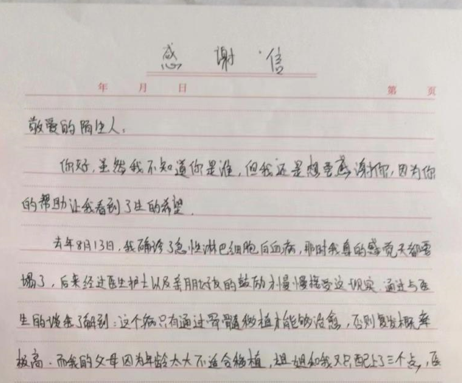 感谢信
年 月 日 第 页
敬爱的陌生人,
你好,虽然我不知道你是谁,但我还是想要感谢你,因为你
的帮助让我看到了生的希望.
去年8月13日,我确诊了急性淋巴细胞白血病,那时我真的感觉天都要
塌了,后来经过医生护士以及亲朋好友的鼓励才慢慢接受这现实.通过与医
生的谈余了解到:这个病只有通过骨髓移植才能够治愈,否则复发概率
极高.而我的父母因为年龄太大不适合移植,姐姐和我又只配上了三个点,医